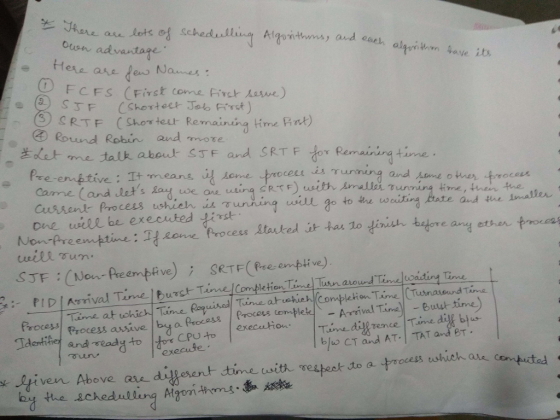 * There are lots of schedulling Algorithms, and each algorithm have its
own advantage.
Here are few Names:
① FCFS (First come First serve)
② SJF (Shortest Job First)
③ SRTF (Shortest Remaining time First)
④ Round Robin and more
* Let me talk about SJF and SRTF for Remaining time.
Pre-emptive: It means if some process is running and some other process
came (and let's say we are using SRTF) with smaller running time, then the
current Process which is running will go to the waiting state and the smaller
one will be executed first.
Non-Preemptive: If some Process started it has to finish before any other process
will run.
SJF: (Non-Preemptive) ; SRTF (Pre-emptive).
Ex:- PID | Arrival Time | Burst Time | Completion Time | Turnaround Time | Waiting Time
Process | Time at which | Time Required | Time at which | (Completion Time | (Turnaround Time
Identifier | Process arrive | by a Process | Process complete | - Arrival Time) | - Burst time)
and ready to | for CPU to | execution. | Time difference | Time diff b/w
run. | execute. | b/w CT and AT. | TAT and BT.
* Given Above are different time with respect to a process which are computed
by the schedulling Algorithms.